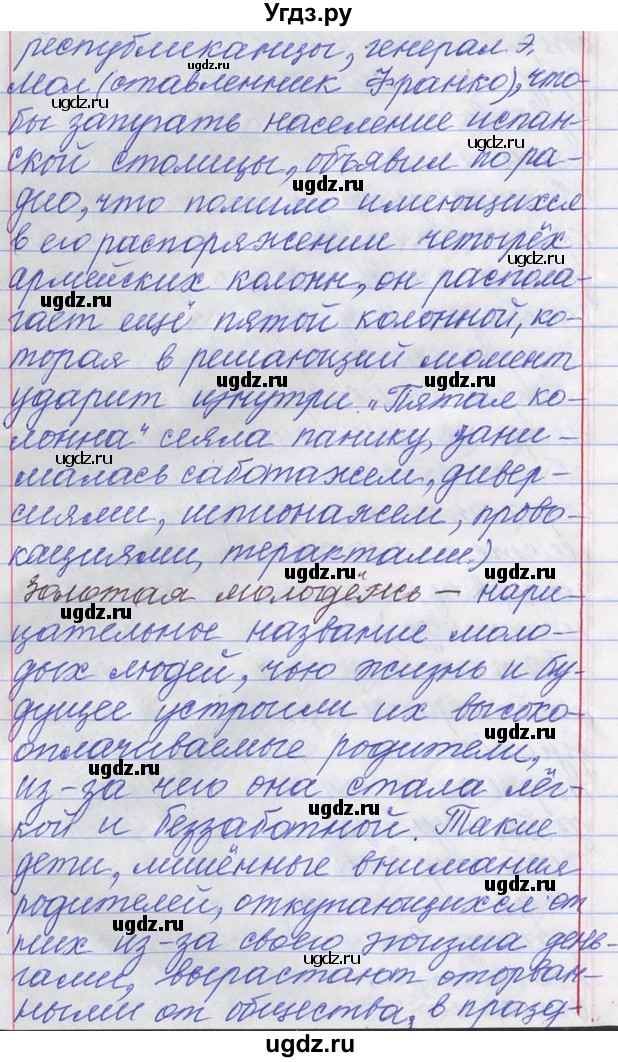 Угдз.ру
республиканцы, генерал Э.
Мол (ставленник Франко), что-
бы запугать население испан-
ской столицы, объявил по ра-
дио, что помимо имеющихся
в его распоряжении четырёх
армейских колонн, он распола-
гает ещё пятой колонной, ко-
торая в решающий момент
ударит изнутри. „Пятая ко-
лонна“ сеяла панику, зани-
малась саботажем, дивер-
сиями, шпионажем, прово-
кациями, терактами.)
Золотая молодёжь – нари-
цательное название моло-
дых людей, чью жизнь и бу-
дущее устроили их высоко-
оплачиваемые родители,
из-за чего она стала лёг-
кой и беззаботной. Такие
дети, лишённые внимания
родителей, откупающихся от
них из-за своего эгоизма день-
гами, вырастают оторван-
ными от общества, в празд-
ugdz.ru